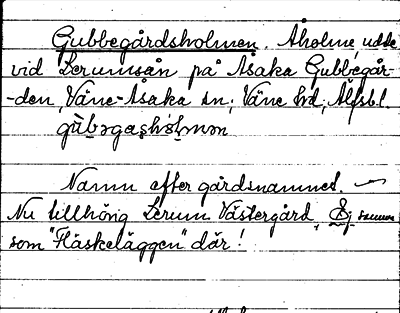 Gubbegårdsholmen. Åholme, udde
vid Lerumsån på Åsaka Gubbegår-
-den, Väne-Åsaka sn; Väne hd, Älfsbl.
gùbəgaşhòlmən
Namn efter gårdsnamnet.
Nu tillhörig Lerum Västergård, Ej samma
som "Fläskeläggen" där!